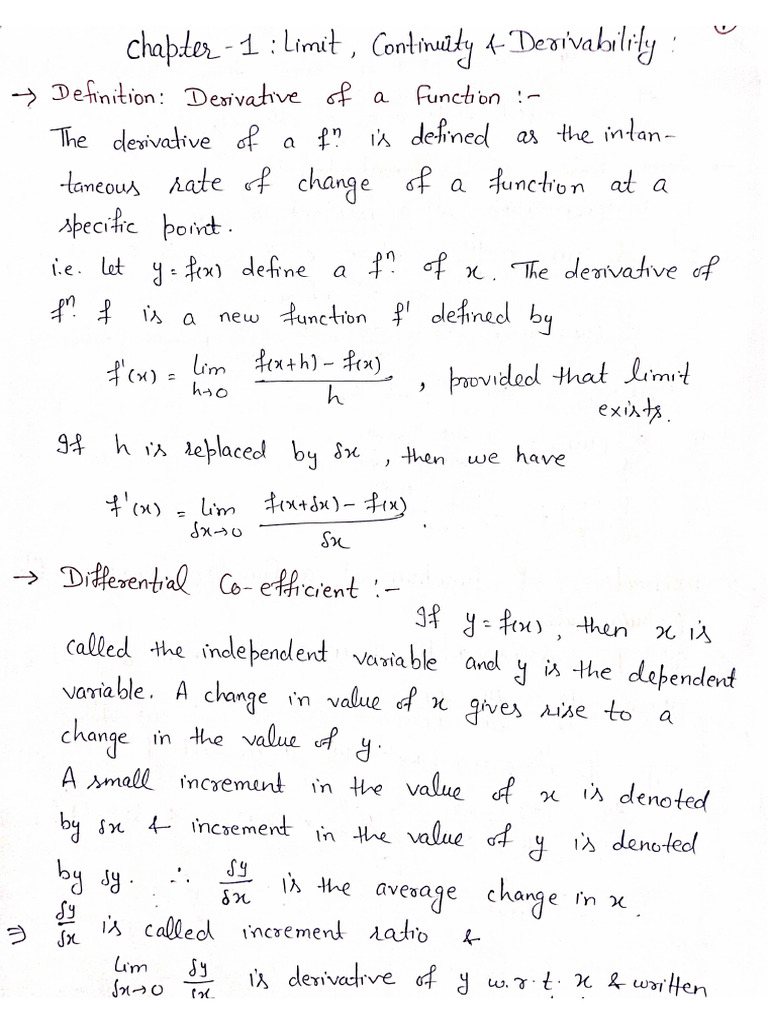 Chapter-1 : Limit, Continuity & Derivability :
→ Definition: Derivative of a Function :-
The derivative of a fⁿ. is defined as the intan-
taneous rate of change of a function at a
specific point.
i.e. let y = f(x) define a fⁿ. of x. The derivative of
fⁿ. f is a new function f' defined by
f'(x) = lim h→0 f(x+h) - f(x) / h , provided that limit
exists.
If h is replaced by δx, then we have
f'(x) = lim δx→0 f(x+δx) - f(x) / δx .
→ Differential Co-efficient :-
If y = f(x), then x is
called the independent variable and y is the dependent
variable. A change in value of x gives rise to a
change in the value of y.
A small increment in the value of x is denoted
by δx & increment in the value of y is denoted
by δy. ∴ δy/δx is the average change in x.
⇒ δy/δx is called increment ratio &
lim δx→0 δy/δx is derivative of y w.r.t. x & written